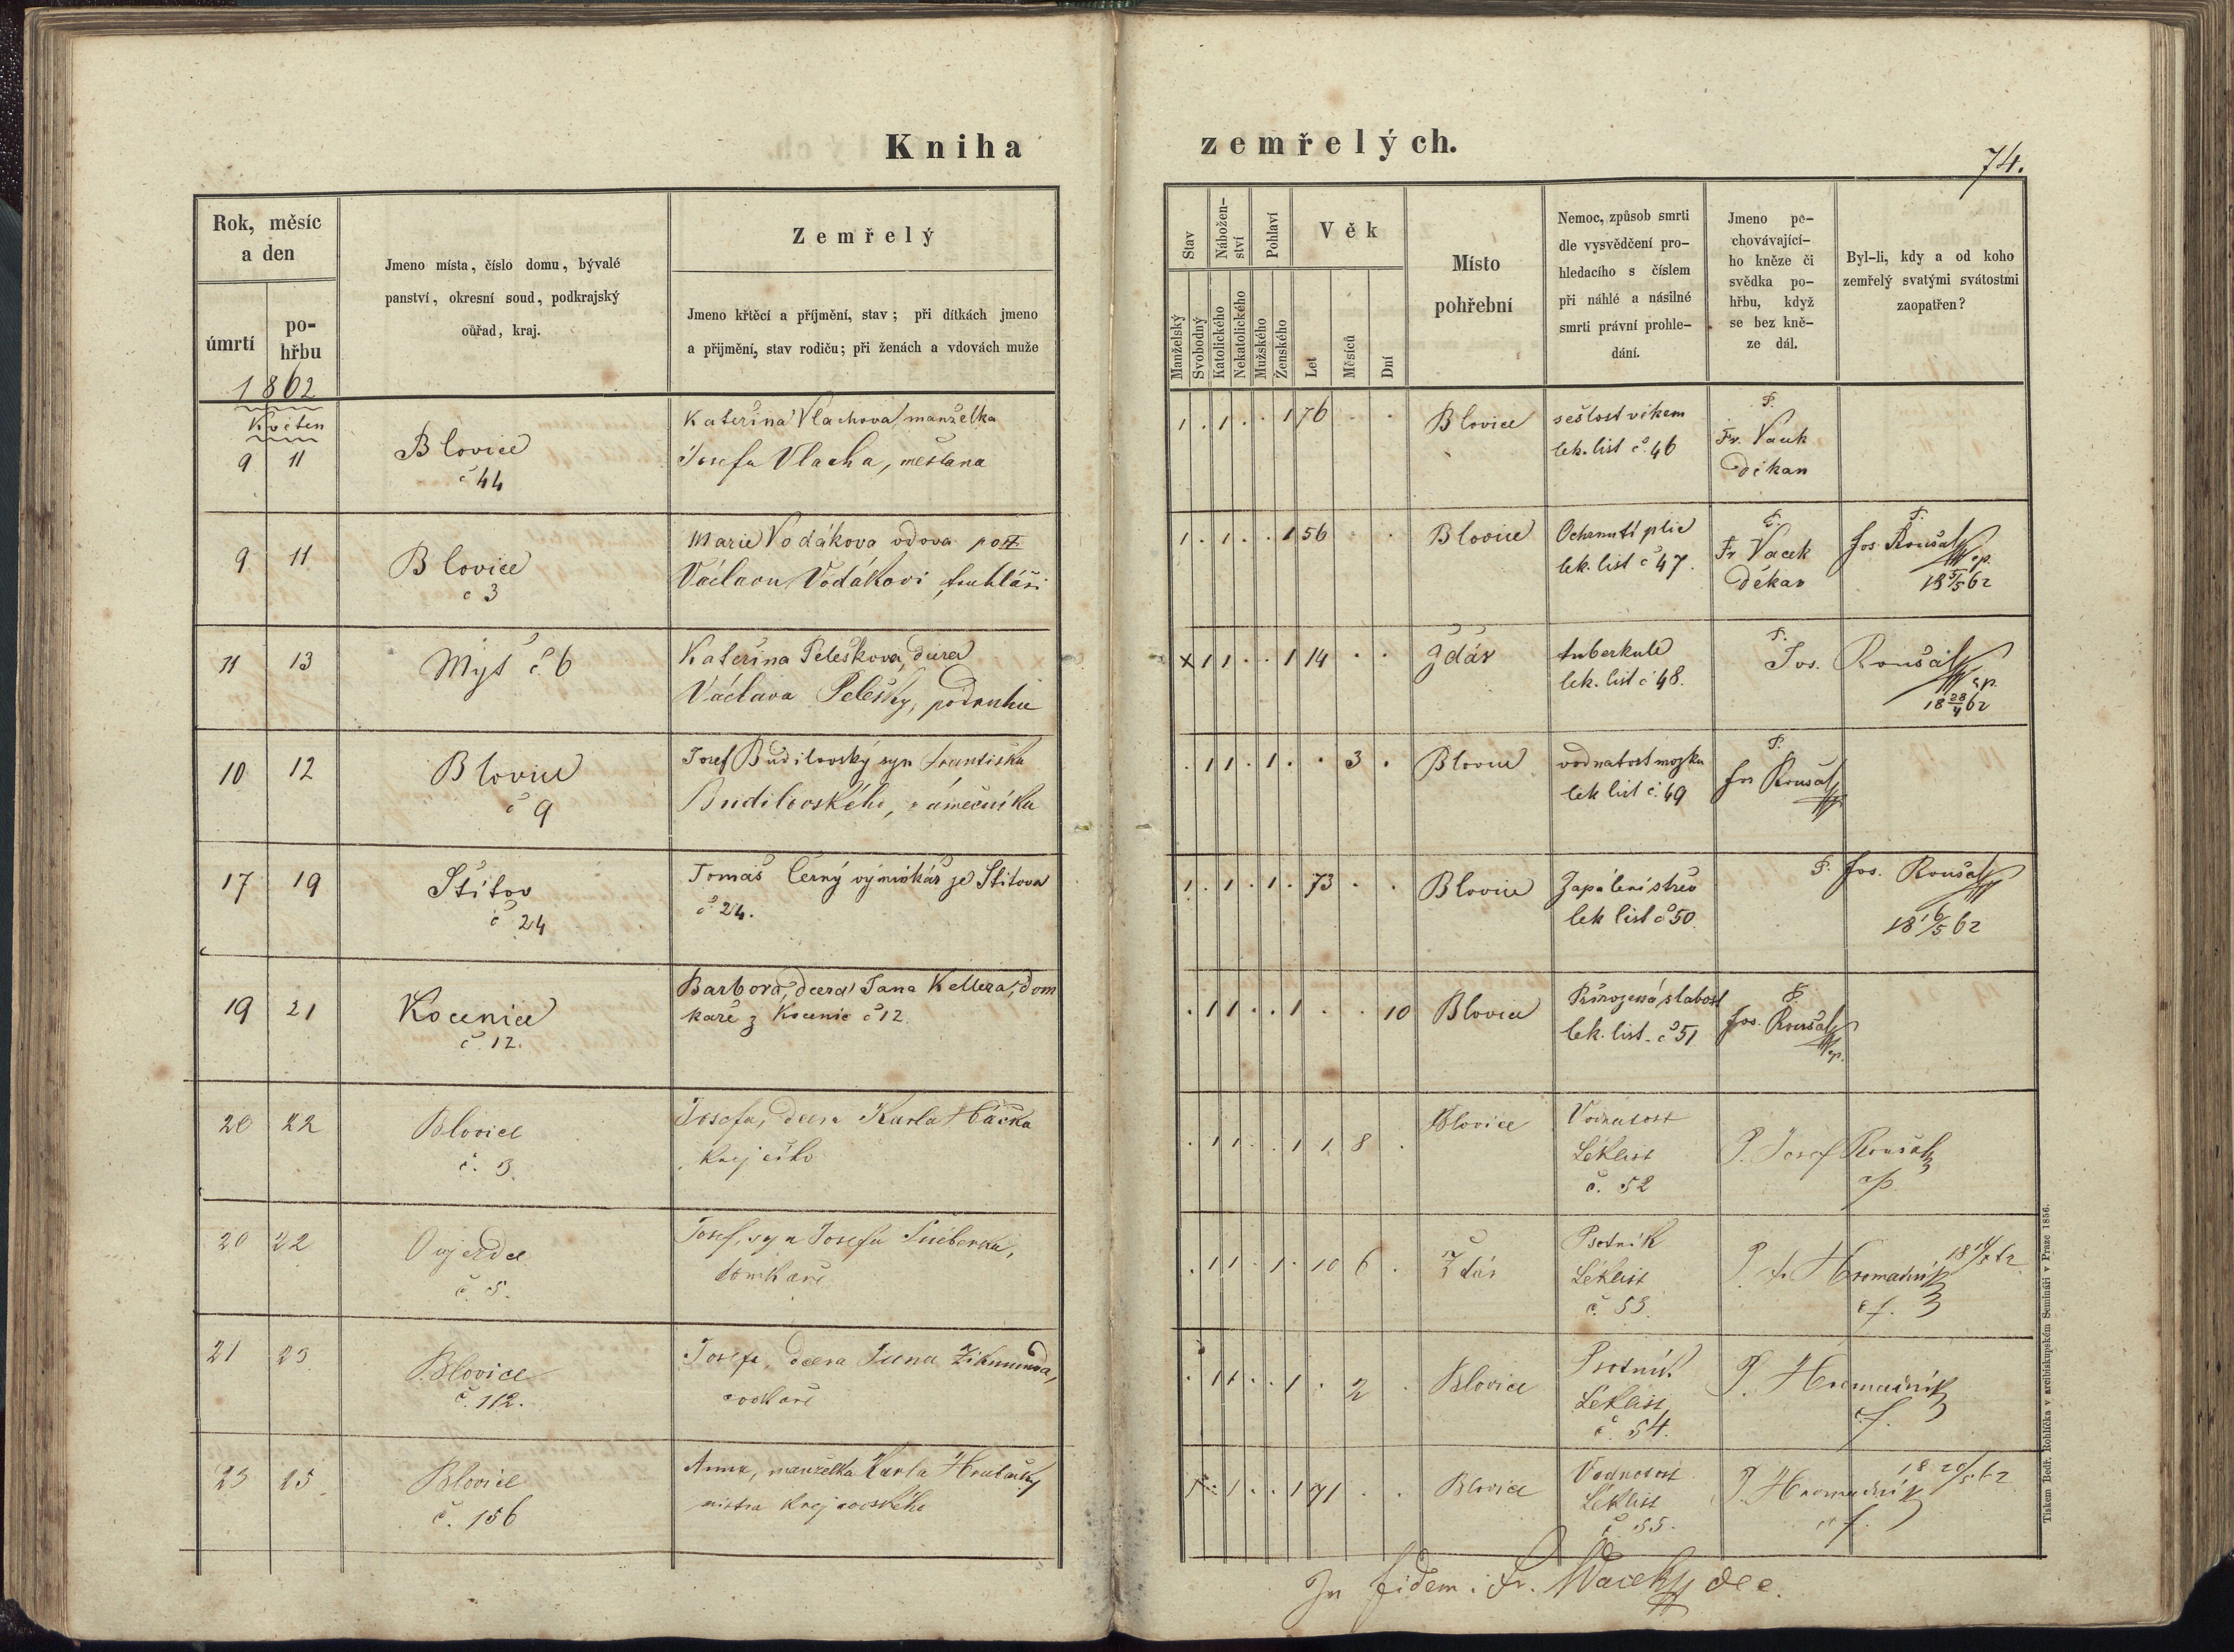 Kniha
zemřelých.
74.
Rok, měsíc
a den
úmrtí
po-
hřbu
1862
Jmeno místa, číslo domu, bývalé
panství, okresní soud, podkrajský
ouřad, kraj.
Zemřelý
Jmeno křtěcí a příjmění, stav; při dítkách jmeno
a přijmění, stav rodičů; při ženách a vdovách muže
Stav
Manželský
Svobodný
Nábožen-
ství
Katolického
Nekatolického
Pohlaví
Mužského
Ženského
Věk
Let
Měsíců
Dní
Místo
pohřební
Nemoc, způsob smrti
dle vysvědčení pro-
hledacího s číslem
při náhlé a násilné
smrti právní prohle-
dání.
Jmeno po-
chovávající-
ho kněze či
svědka po-
hřbu, když
se bez kně-
ze dál.
Byl-li, kdy a od koho
zemřelý svatými svátostmi
zaopatřen?
Květen
9 11
Blovice
č 44
Kateřina Vlachova manželka
Josefa Vlacha, mešťana
1 . 1 . . 1 76 . .
Blovice
sešlost věkem
lek. list č. 46
P.
Fr. Vacek
děkan
9 11
Blovice
č 3
Marie Vodákova vdova po
Václavu Vodákovi, truhláři
1 . 1 . . 1 56 . .
Blovice
Ochrnutí plic
lek. list č 47.
P.
Fr. Vacek
děkan
P.
Jos. Roušal
cp.
18 5/5 62
11 13
Myť č 6
Kateřina Peleškova, dcera
Václava Pelešky, podruhu
x 1 1 . . 1 14 . .
Ždár
tuberkule
lek. list č 48.
P.
Jos. Roušal
cp.
18 28/4 62
10 12
Blovice
č 9
Josef Budilovský syn Františka
Budilovského, zámečníka
. 1 1 . 1 . . 3 .
Blovice
vodnatost mozku
lek list č. 49
P.
Jos Roušal
17 19
Štítov
č 24
Tomáš Černý výminkář ze Štitova
č 24.
1 . 1 . 1 . 73 . .
Blovice
Zapálení střev
lek list č 50.
P. Jos. Roušal
18 16/5 62
19 21
Kocenice
č. 12.
Barbora, dcera Jana Kellera, dom
káře z Kocenic č 12.
. 1 1 . . 1 . . 10
Blovice
Přirozená slabost
lek. list. č 51
P.
Jos. Roušal
cp.
20 22
Blovice
č. 3.
Josefa, dcera Karla
krejčího
. 1 1 . . 1 1 8 .
Blovice
Vodnatost
Léklist
č. 52
P. Josef Roušal
cp.
20 22
Oujezdce
č. 5.
Josef, syn Josefa
domkáře
. 1 1 . 1 . 10 6 .
Ždár
Psotník
Léklist
č. 53.
P. Fr. Hromadník
cf.
21 23
Blovice
č. 112.
Josefa, dcera Jana Zikmunda,
. 1 1 . . 1 . 2 .
Blovice
Psotník
Léklist
č. 54.
P. Hromadník
cf.
23 25
Blovice
č. 156
Anna, manželka Karla
mistra krejčovského
1 . 1 . . 1 71 . .
Blovice
Vodnatost
Léklist
č 55.
P. Hromadník
cf.
18 20/5 62
In fidem: Fr. Wacek dec.
Tiskem Bedř. Rohlíčka v arcibiskupském Semináři v Praze 1856.